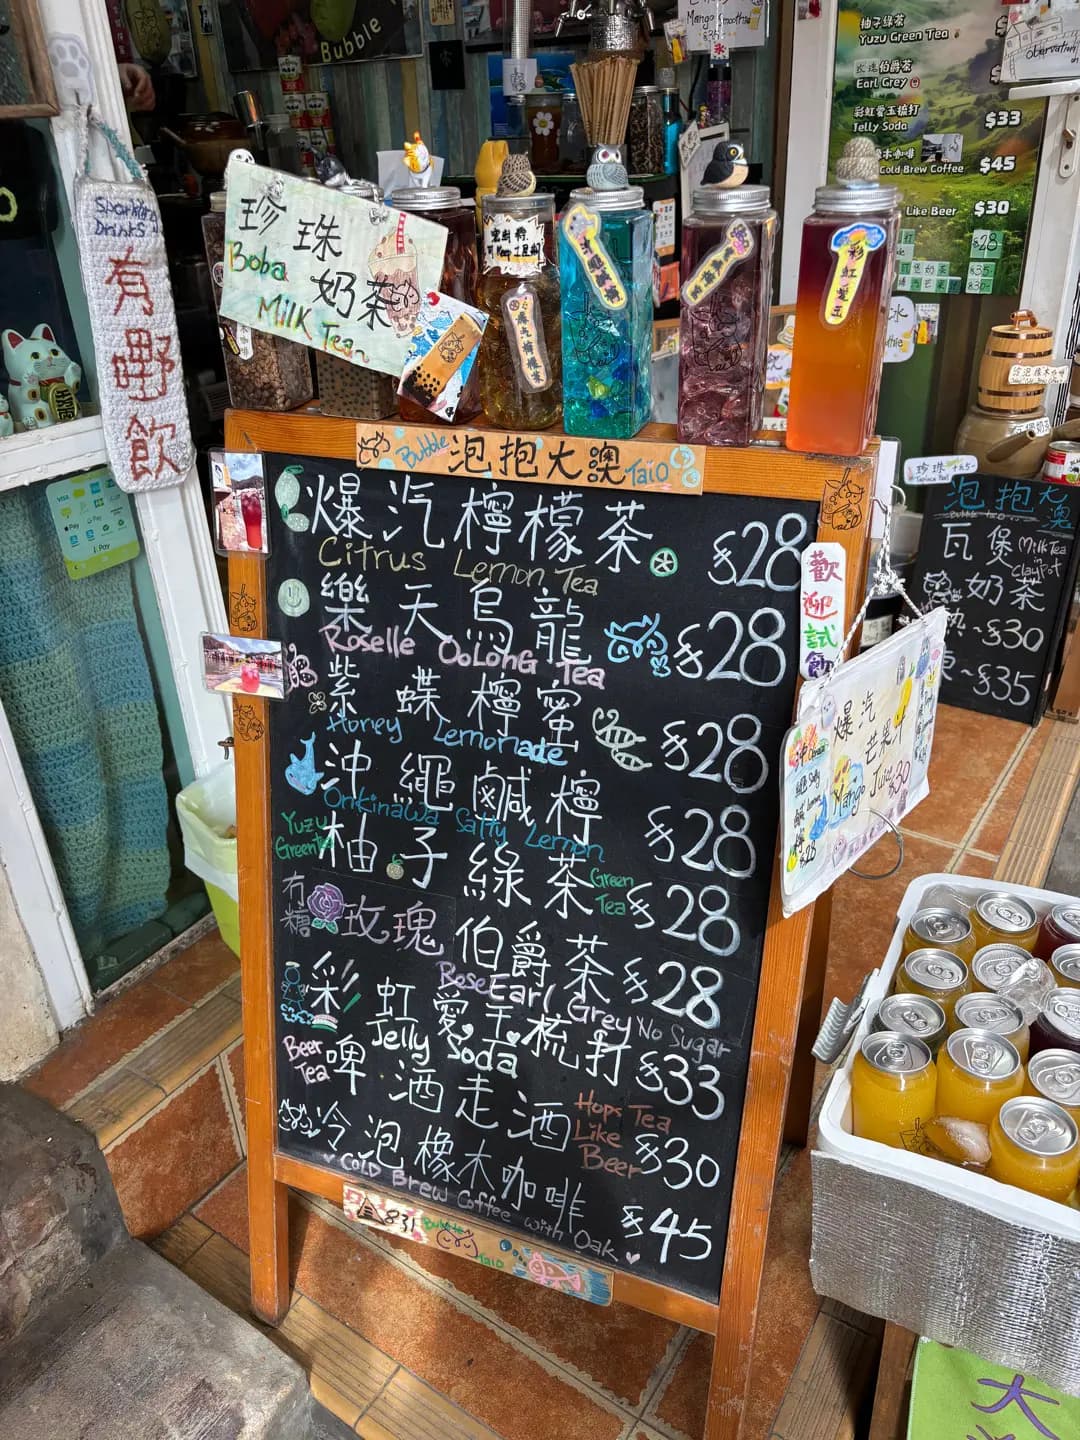 Bubble
Mango Smoothie
柚子綠茶
Yuzu Green Tea
玫瑰伯爵茶
Earl Grey
彩虹愛玉梳打
Jelly Soda $33
Cold Brew Coffee $45
Like Beer $30
$28
$35
Sparkling
Drinks
有
嘢
飲
珍珠
Boba
奶茶
Milk Tea
彩虹愛玉
VISA
Pay
Bubble 泡抱大澳 Taio
爆汽檸檬茶 $28
Citrus Lemon Tea
樂天烏龍 $28
Roselle Oolong Tea
紫蝶檸蜜 $28
Honey Lemonade
沖繩鹹檸 $28
Onkinawa Salty Lemon
Yuzu
Green Tea
柚子綠茶 Green Tea $28
冇糖 玫瑰伯爵茶 $28
Rose Earl Grey No Sugar
彩虹愛玉梳打 $33
Jelly Soda
Beer Tea
啤酒走酒 Hops Tea Like Beer $30
冷泡橡木咖啡 $45
Cold Brew Coffee with Oak
831 Bubble Taio
歡迎試飲
爆汽
芒果汁
Mango Juice $30
沖繩鹹檸
Okinawa Salty Lemon
$28
珍珠 +$5
泡抱大澳
瓦煲
奶茶
Milk Tea in Clay Pot
熱~$30
凍~$35
冷泡橡木咖啡
大